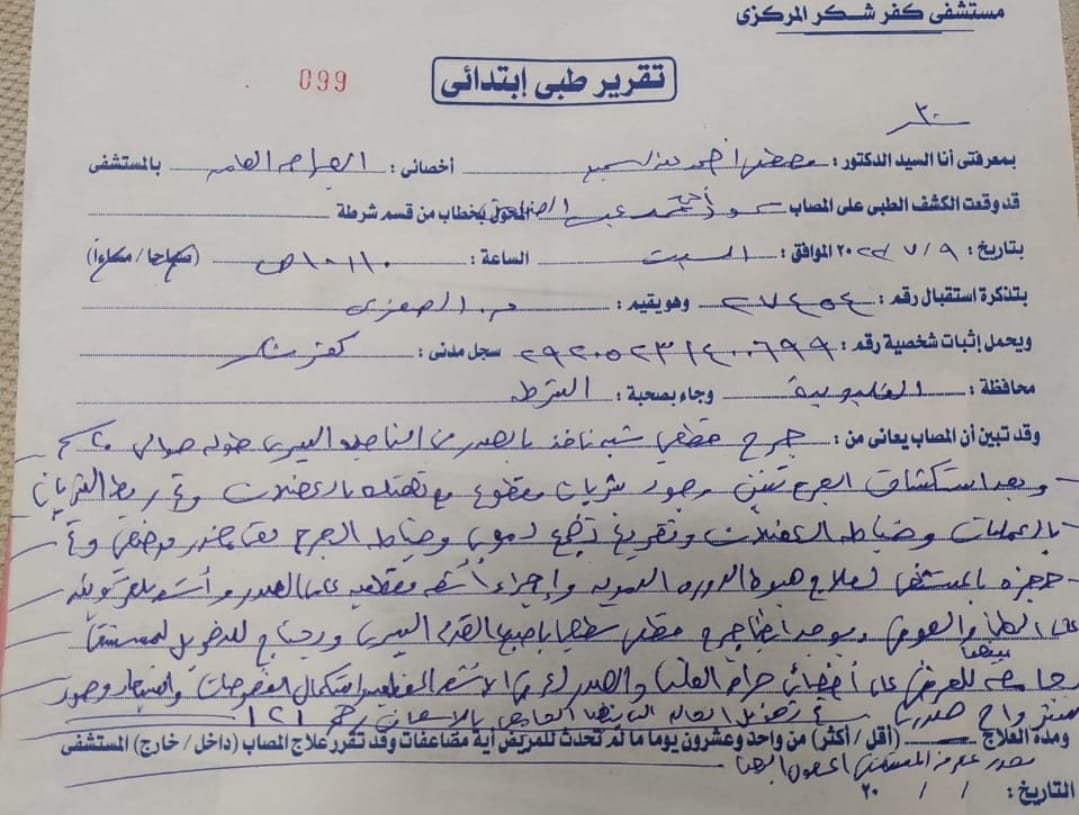 مستشفى كفر شكر المركزى
تقرير طبى إبتدائى
099
بمعرفتى أنا السيد الدكتور : مصطفى احمد عبد السميع أخصائى : الجراحه العامه بالمستشفى
قد وقعت الكشف الطبى على المصاب المحول بخطاب من قسم شرطة
بتاريخ : ٩ / ٧ / ٢٠٢٢ الموافق : السبت الساعة : ١٠،١٠ ص (صباحا / مساءاً)
بتذكرة استقبال رقم : ٢٧٤٥٤ وهو يقيم :
ويحمل إثبات شخصية رقم : ٢٩٢٠٥٢٣١٤٠٠٦٩٩ سجل مدنى : كفر شكر
محافظة : القليوبية وجاء بصحبة : الشرطه
وقد تبين أن المصاب يعانى من : جرح قطعي شبه نافذ بالصدر من الناحيه اليسرى طوله حوالي ٢٠ سم
وبعد استكشاف الجرح تبين وجود شريان مقطوع مع تهتك بالعضلات وتم ربط الشريان
بالعمليات وخياطه العضلات وتفريغ تجمع دموي وخياطه الجرح تحت مخدر موضعي وتم
حجزه بالمستشفى لعلاج هبوط الدوره الدمويه وإجراء أشعه مقطعيه على الصدر وأشعه
على البطن والحوض ويوجد ايضا جرح قطعي سطحي باصبع القدم اليسرى ويحتاج للتحويل لمستشفى
بنها
جامعه للعرض على أخصائي جراحه القلب والصدر لإجراء الاشعه المقطعيه واستكمال الفحوصات واستبعاد وجود
تم تحويل الحاله الى بنها الجامعي بالاسعاف رقم ١٢١
ومدة العلاج (أقل / أكثر) من واحد وعشرون يوما ما لم تحدث للمريض أية مضاعفات وقد تقرر علاج المصاب (داخل / خارج) المستشفى
التاريخ : / / ٢٠